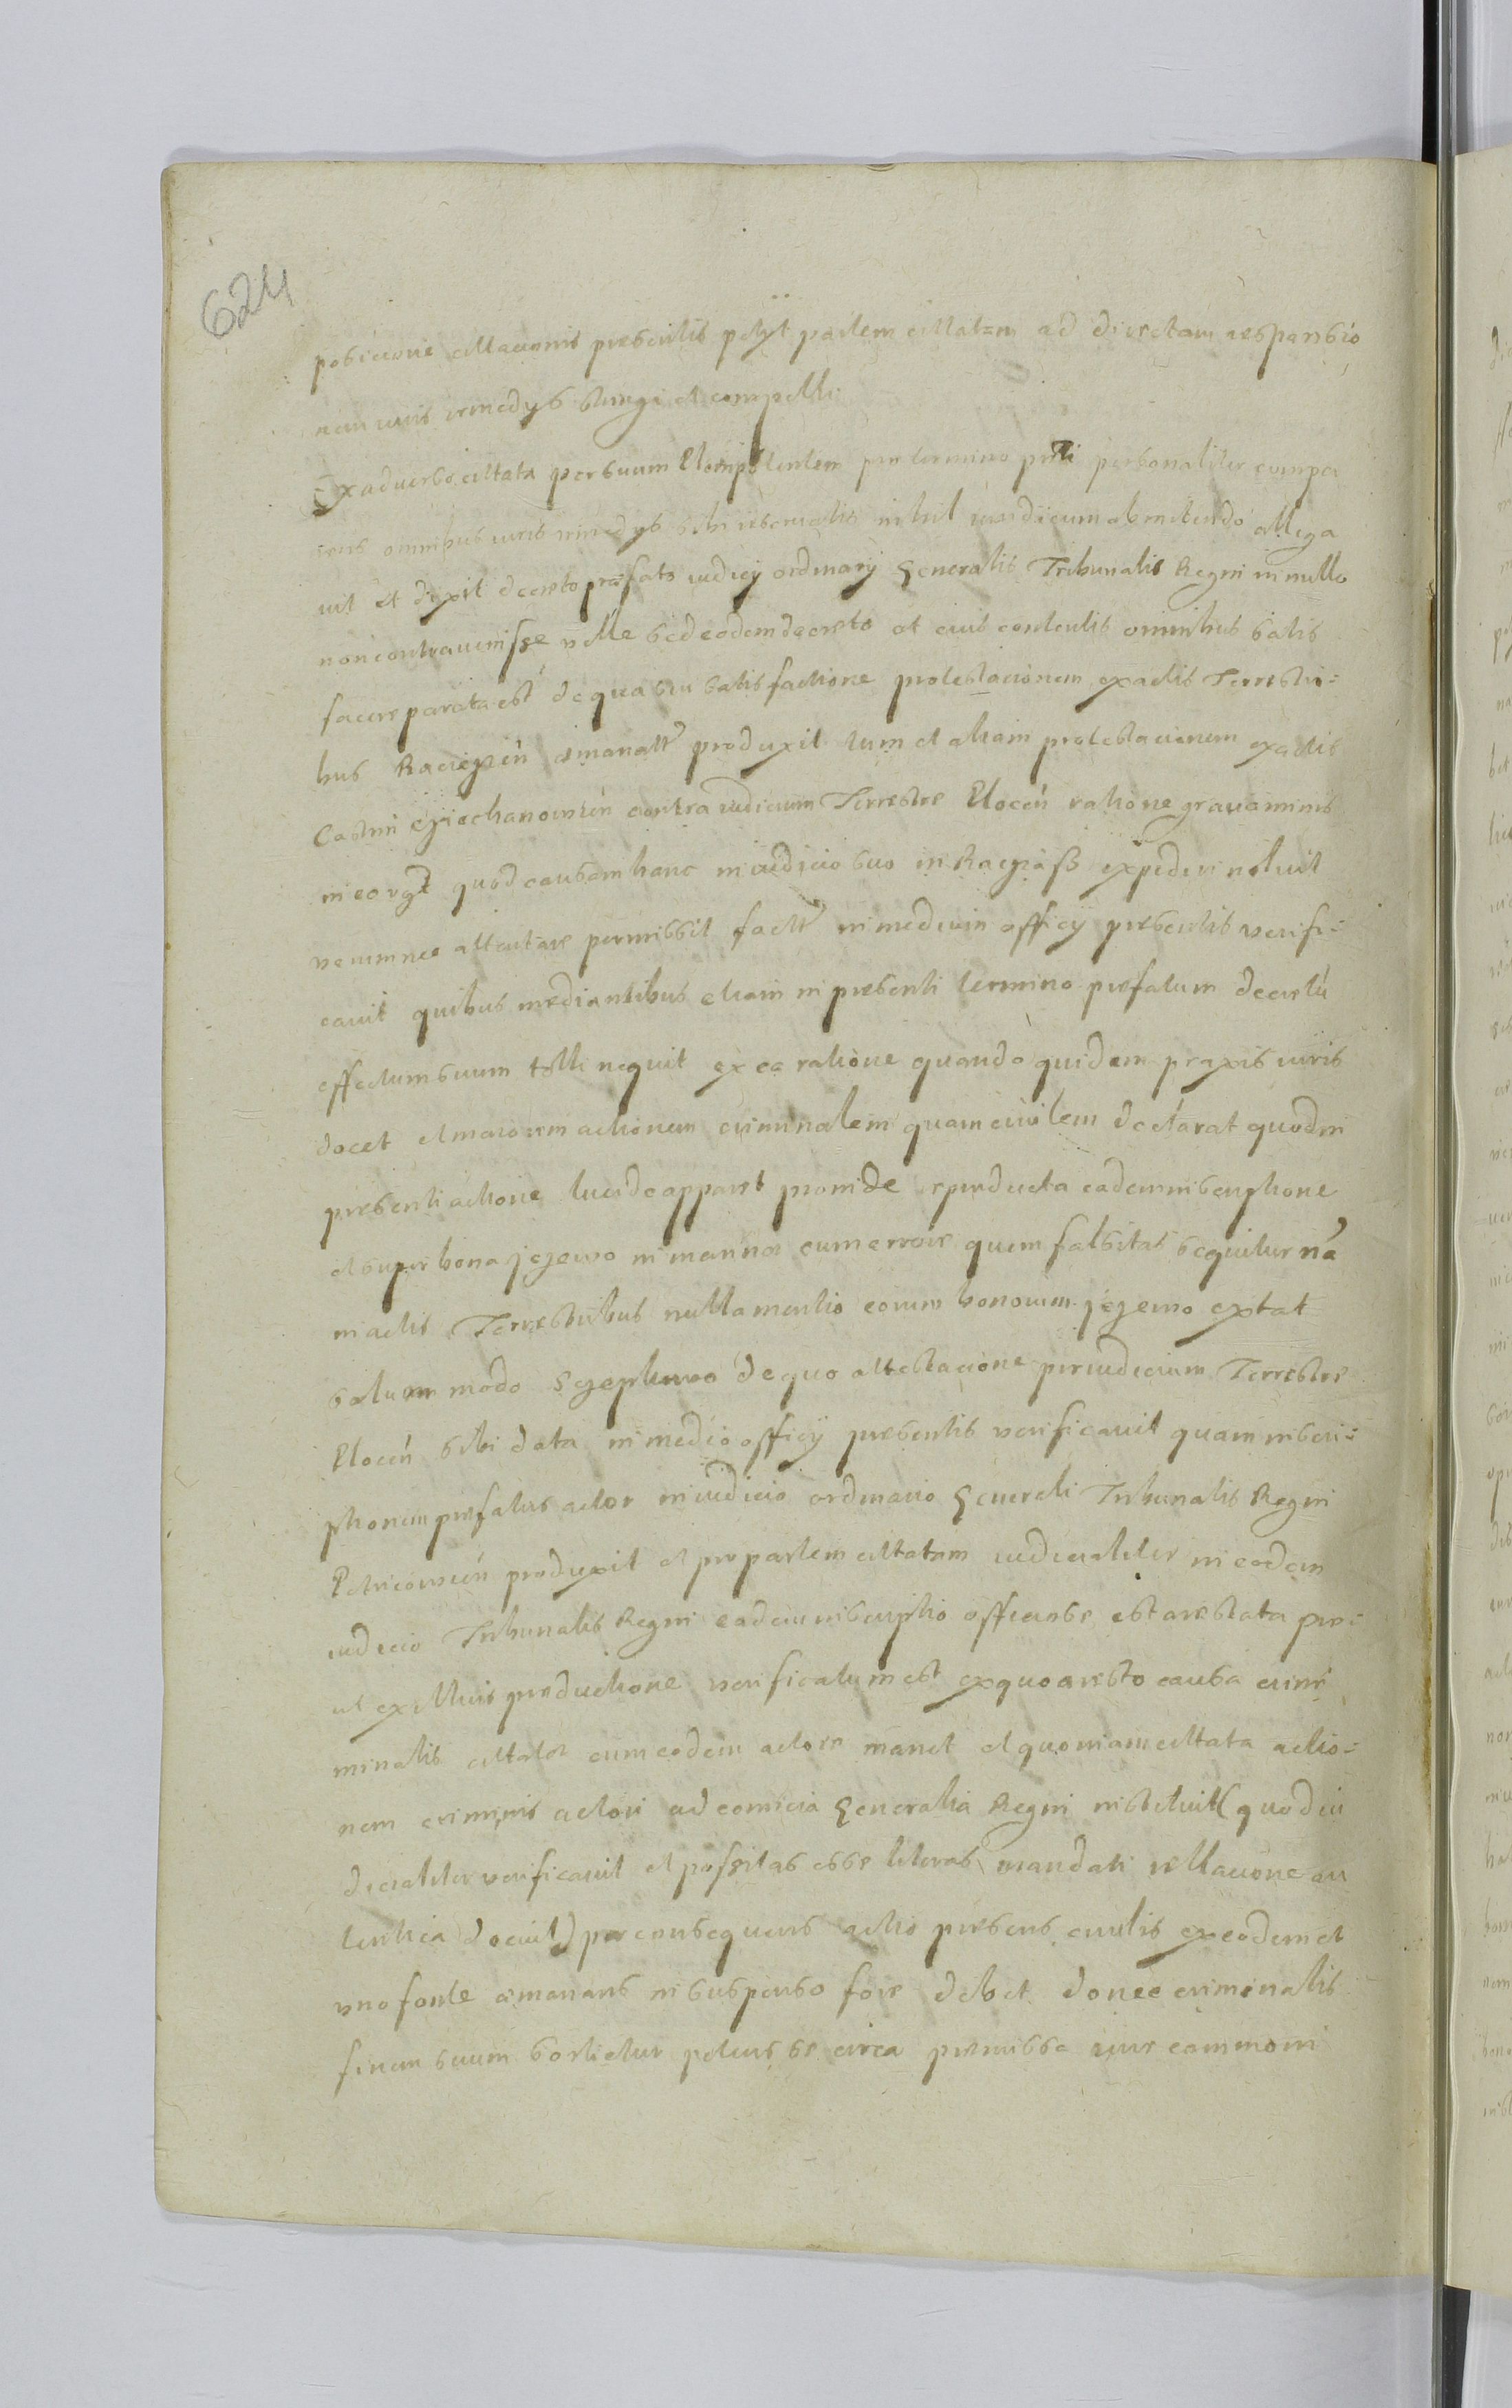 624
posicione citacionis presentis petÿt partem citatam ad directam responsio
nem iuris remedys stringi et compelli
Ex adverso citata per suum Plenipotentem pro termino pnti personaliter compa
rens omnibus iuris remedys sibi reservatis nihil iuridicum obmittendo allega
vit et dixit decreto præfato iudicy ordinarÿ Generalis Tribunalis Regni in nullo
non contravenisse velle sed eodem decreto et eius contentis omnibus satis
facere parata est de qua sua satisfactione protestacionem ex actis Terrestri=
bus Raciązen emanatt produxit tum et aliam protestacionem ex actis
Castrn Cziechanowien contra iudicium Terrestre Plocen ratione gravaminis
in eo quod causam hanc in iudicio suo in Raciąss expedire noluit
verum nec attentare permissit fact in medium officy presentis verifi=
cavit quibus mediantibus etiam in presenti termino prefatum decretu
effectum suum tolli nequit ex ea ratione quando quidem praxis iuris
docet et maiorem actionem criminalem quam civilem declarat quod in
presenti actione lucide apparet proinde reproducta eadem inscriptione
et super bona Jezewo in manna cum errore quem falsitas sequitur na
in actis Terrestribus nulla mentio eorum bonorum Jezewo extat
solummodo Szeplewo de quo attestacione per iudicium Terrestre
Plocen sibi data in medio officÿ presentis verificavit quam inscri=
ptionem prefatus actor in iudicio ordinario Generali Tribunalis Regni
Petricovien produxit et pro partem citatam iudicialiter in eodem
iudicio Tribunalis Regni eadem inscriptio officiose est arestata pro=
ut ex illius productione verificatum est ex quo aresto causa crimi
minalis citatae cum eodem actore manet et quoniam citata actio=
nem criminis actori ad comicia Generalia Regni instituit (quod iu
dicialiter verificavit et possitas esse literas mandati rellacione au
tentica docuit) per consequens actio presens civilis ex eodem et
uno fonte emanans in suspenso fore debet donec criminalis
finem suum sortietur petens se circa premissa iure communi